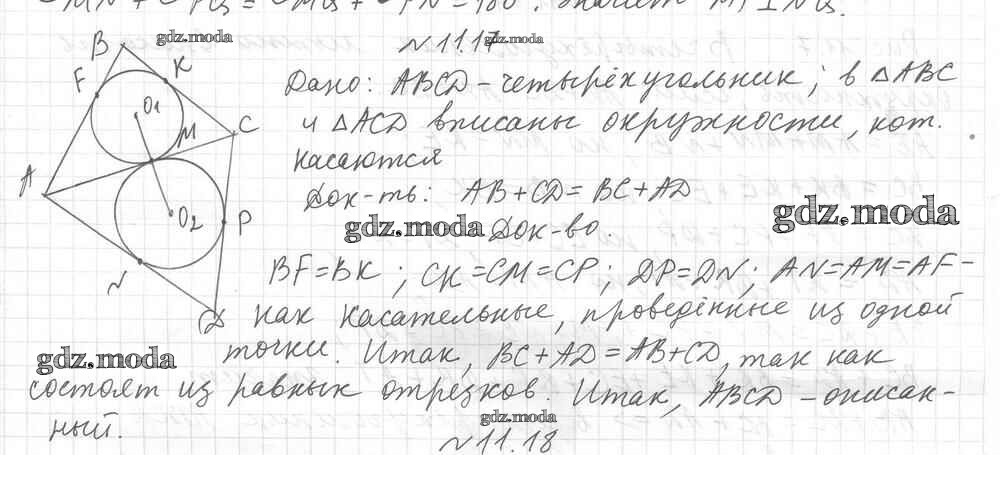 ∠MN + ∠PQ = ∠MQ + ∠PN = 180°. Значит MP⊥NQ.
gdz.moda
gdz.moda
№11.17
B
F
K
O1
M
C
A
O2
P
N
D
Дано: ABCD - четырёхугольник; в △ABC
и △ACD вписаны окружности, кот.
касаются
Док-ть: AB + CD = BC + AD
gdz.moda
gdz.moda
Док-во.
BF = BK; CK = CM = CP; DP = DN; AN = AM = AF -
как касательные, проведённые из одной
точки. Итак, BC + AD = AB + CD, так как
gdz.moda
состоят из равных отрезков. Итак, ABCD - описан-
ный.
gdz.moda
№11.18